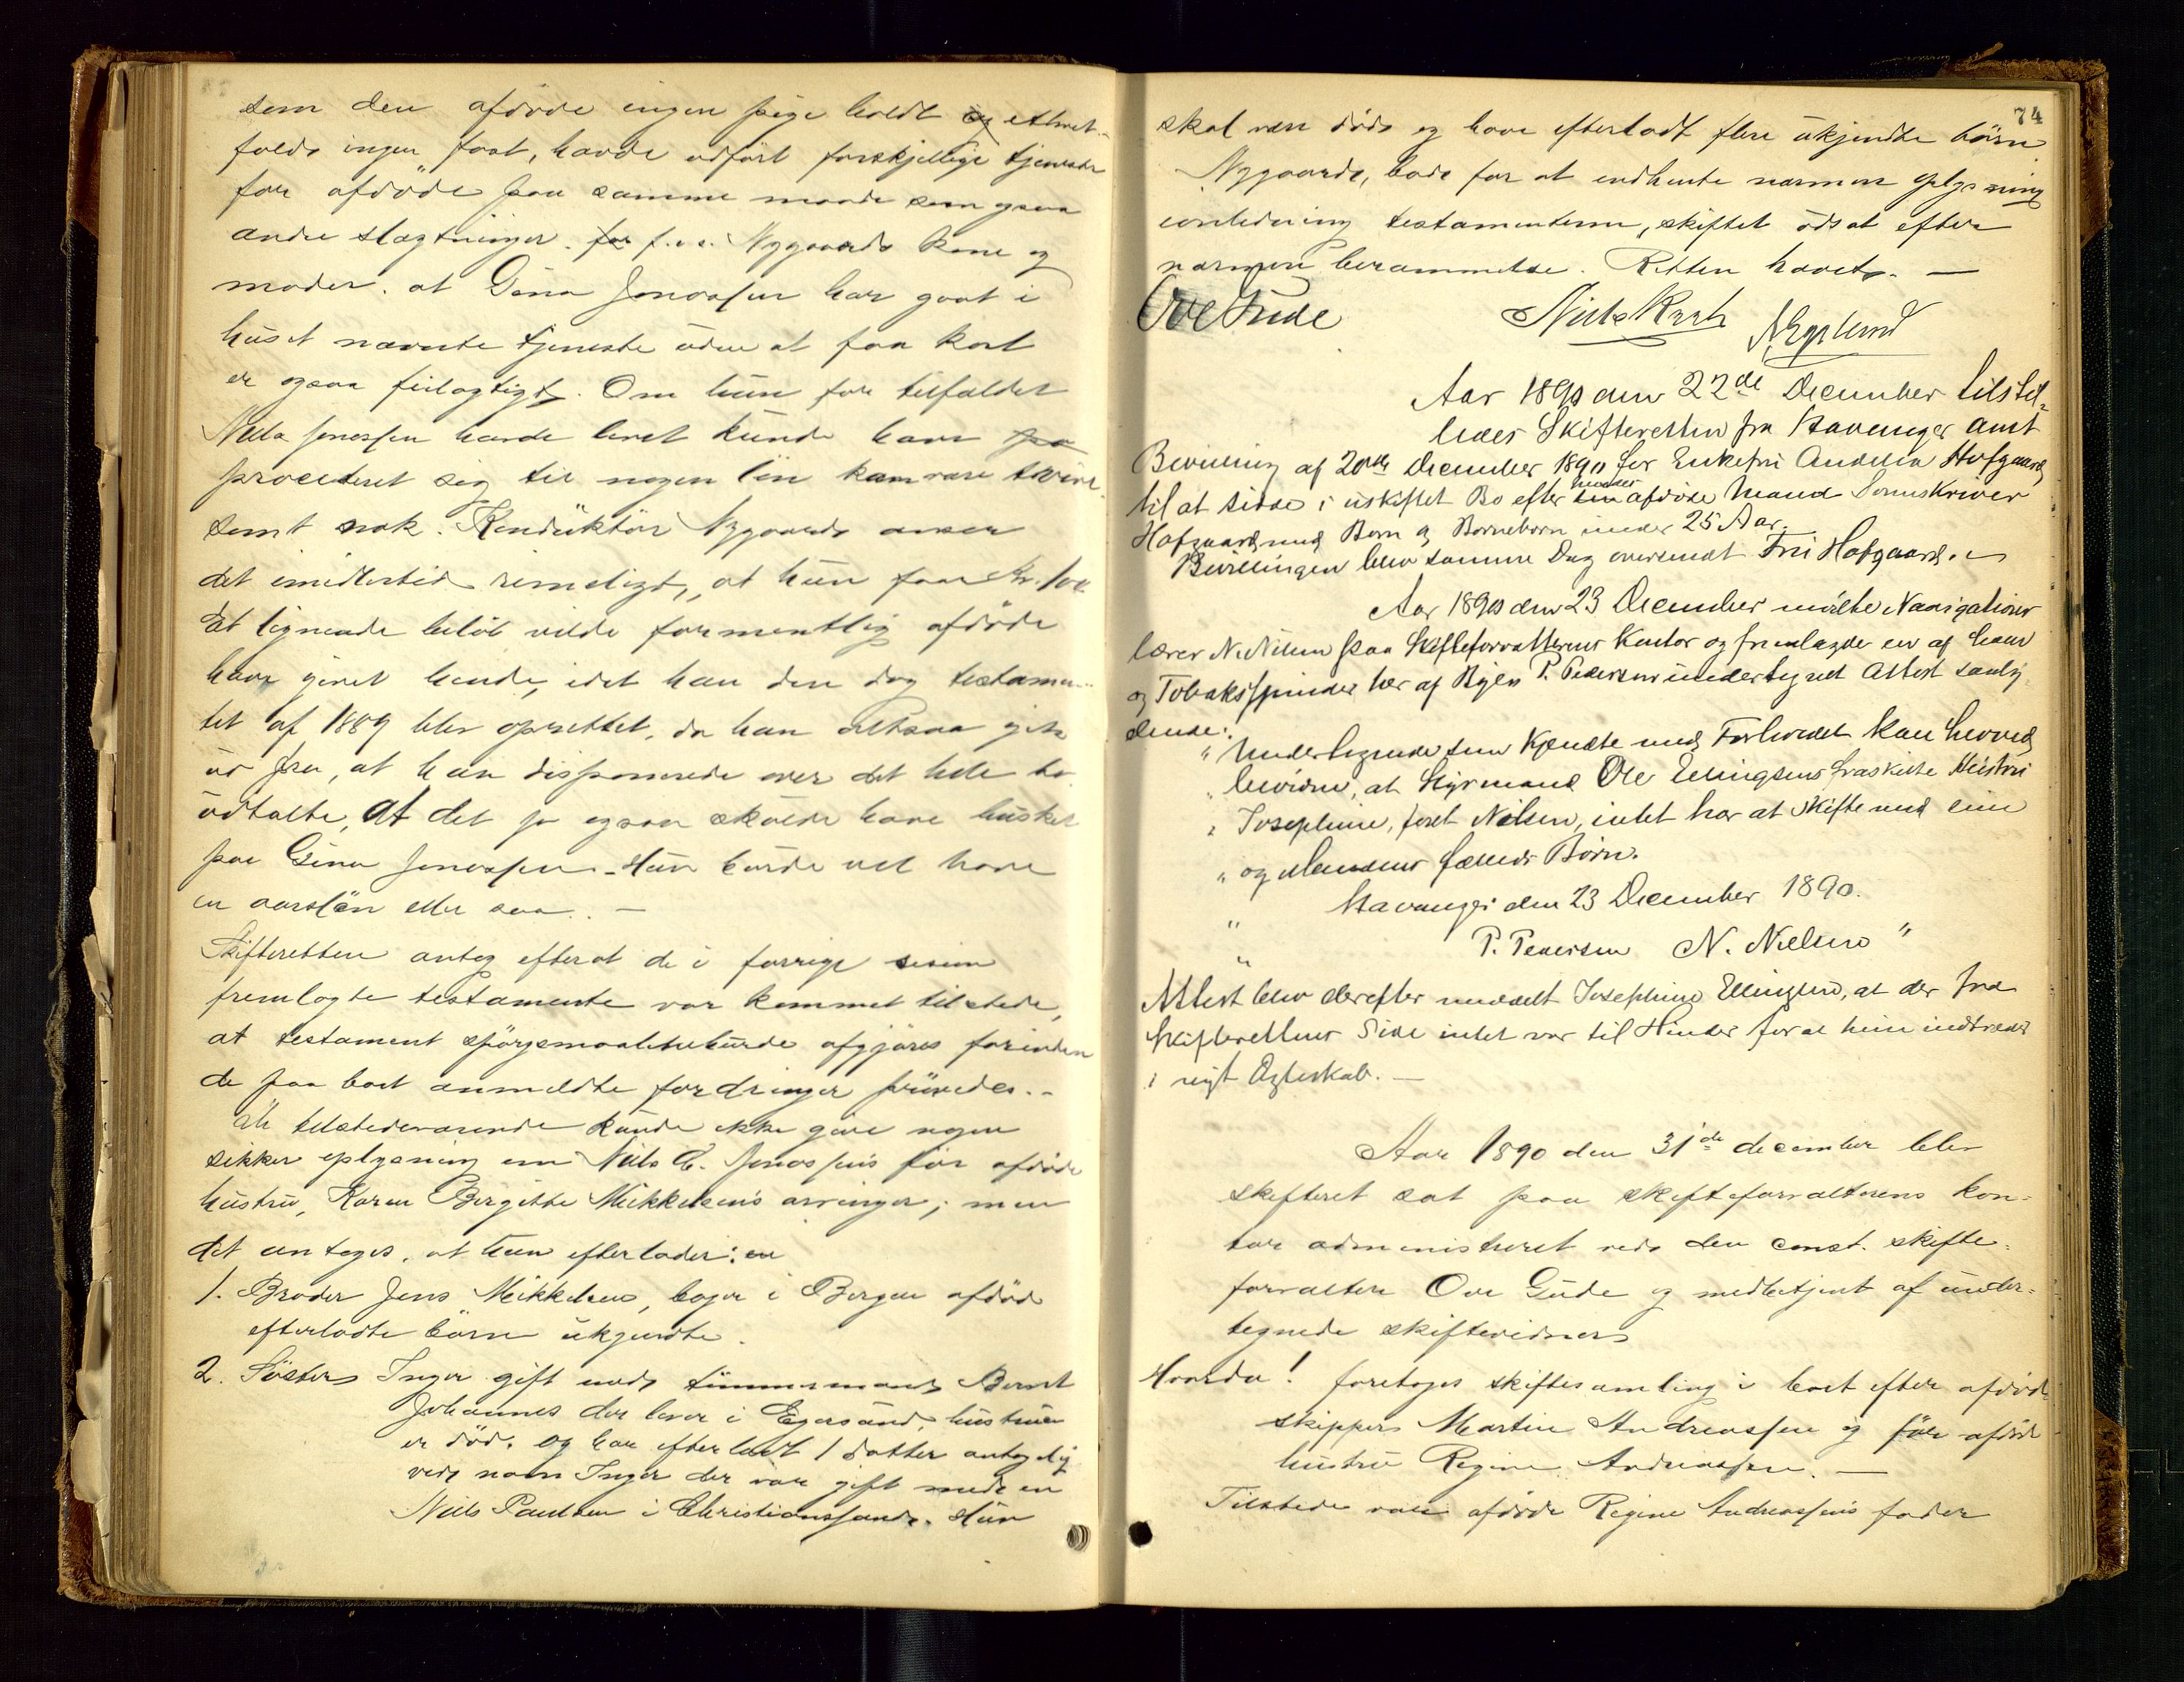 sem den afdøde ingen pige holdt og ethvert-
folds ingen fast, havde udført forskjellige tjenester
for afdøde paa samme maade som ogsaa
andre slægtninger. for f. ex. Nygaards kone og
moder. at Gina Jonassen har gaat i
huset nævnte tjeneste uden at faa kost
er ogsaa feilagtigt. Om hun for tilfældet
Niels Jonassen havde levet kunde have
procederet sig til nogen løn kan være tvivl-
somt nok. Konduktør Nygaards anser
det imidlertid rimeligt, at hun faar Kr. 100
Et lignende beløb vilde formentlig afdøde
have givet hende, idet han den dag testamen-
tet af 1889 blev oprettet, da han altsaa gik
ud fra, at han disponerede over det hele bo
udtalte, at det jo ogsaa skulde have husket
paa Gina Jonassen. Hun burde vel have
en aarsløn eller saa. —
Skifteretten antog efterat de i forrige sesion
fremlagte testamente var kommet tilstede,
at testament spørgsmaalet burde afgjøres forinden
de paa boet anmeldte fordringer prøvedes. -
De tilstedeværende kunde ikke give nogen
sikker oplysning om Niels C. Jonassens før afdøde
hustru, Karen Birgitte Mikkelsens arvinger; men
det antoges, at hun efterlader: en
1. Broder Jens Mikkelsen, bager i Bergen afdød
efterladte børn ukjendte.
2. Søster Inger gift med tømmermand Bernt
Johannes der lever i Egersund, hustruen
er død. og har efterladt 1 datter antagelig
ved navn Inger der var gift med en
Niels Paulsen i Christianssand. Hun
74
skal være død og have efterladt flere ukjendte børn.
Nygaard, bad for at indhente nærmere oplysning
i anledning testamenterne, skiftet udsat efter
nærmere berammelse. Retten hævet. —
Ove Gude
Aar 1890 den 22de December tilstil-
ledes Skifteretten fra Stavanger Amt
Bevilling af 20de December 1890 for Enkefru Andrea Hofgaard
til at sidde i uskiftet Bo efter sin hendes afdøde Mand Sorenskriver
Hofgaard med Børn og Børnebørn under 25 Aar.
Bevillingen blev samme Dag oversendt Fru Hofgaard.
Aar 1890 den 23 December mødte Navigations
lærer N. Nielsen paa Skifteforvalterens Kontor og fremlagde en af ham
og Tobakspinder her af Byen P. Pedersen undertegnet Attest saaly-
dende:
" Undertegnede som kjendte med Forholdet kan herved
" bevidne, at Styrmand Ole Ellingsens fraskilte Hustru
" Josephine, født Nielsen, intet har at skifte med sine
" og Mandens fælleds Børn.
" Stavanger den 23 December 1890.
" P. Pedersen N. Nielsen "
Attest blev derefter meddelt Josephine Ellingsen, at der fra
Skifterettens Side intet var til Hinder for at hun indtræder
i nyt Ægteskab. —
Aar 1890 den 31te december blev
skifteret sat paa skifteforvalterens kon-
tor administreret ved den const. skifte-
forvalter Ove Gude og medbetjent af under-
tegnede skiftevidner
Hvorda! foretoges skiftesamling i boet efter afdød
skipper Martin Andreassen og før afdød
hustru Regine Andreassen. —
Tilstede var afdøde Regine Andreassens fader